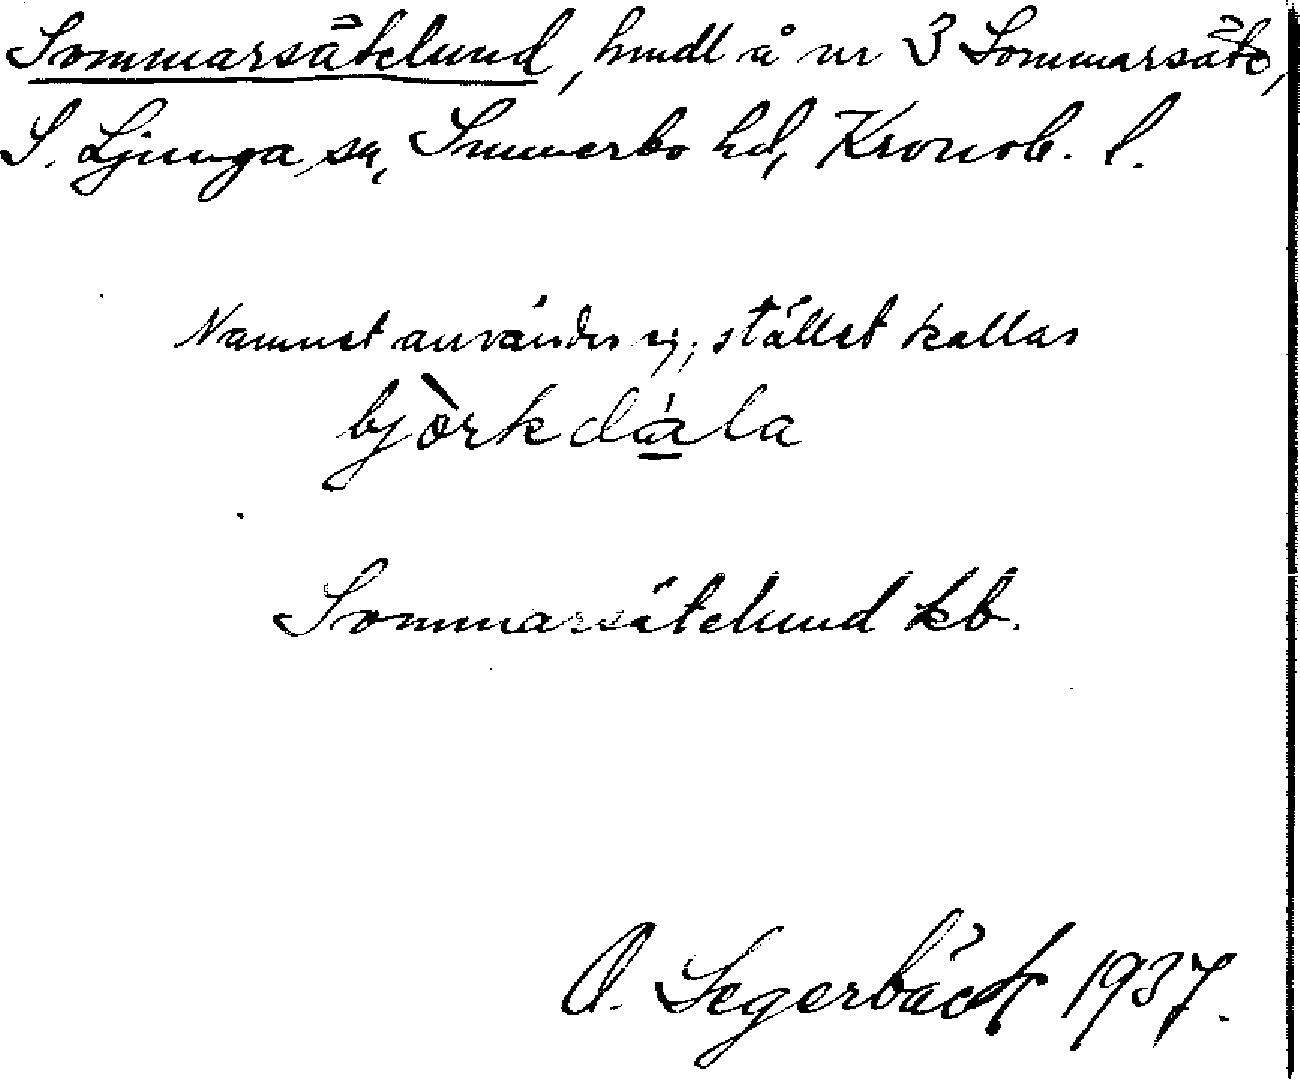 Sommarsätelund, hmdl å nr 3 Sommarsäte,
S. Ljunga sn, Sunnerbo hd, Kronob. l.
Namnet användes ej, stället kallas
bjòrkdá̱la
Sommarsätelund kb.
O. Segerbäck 1937.